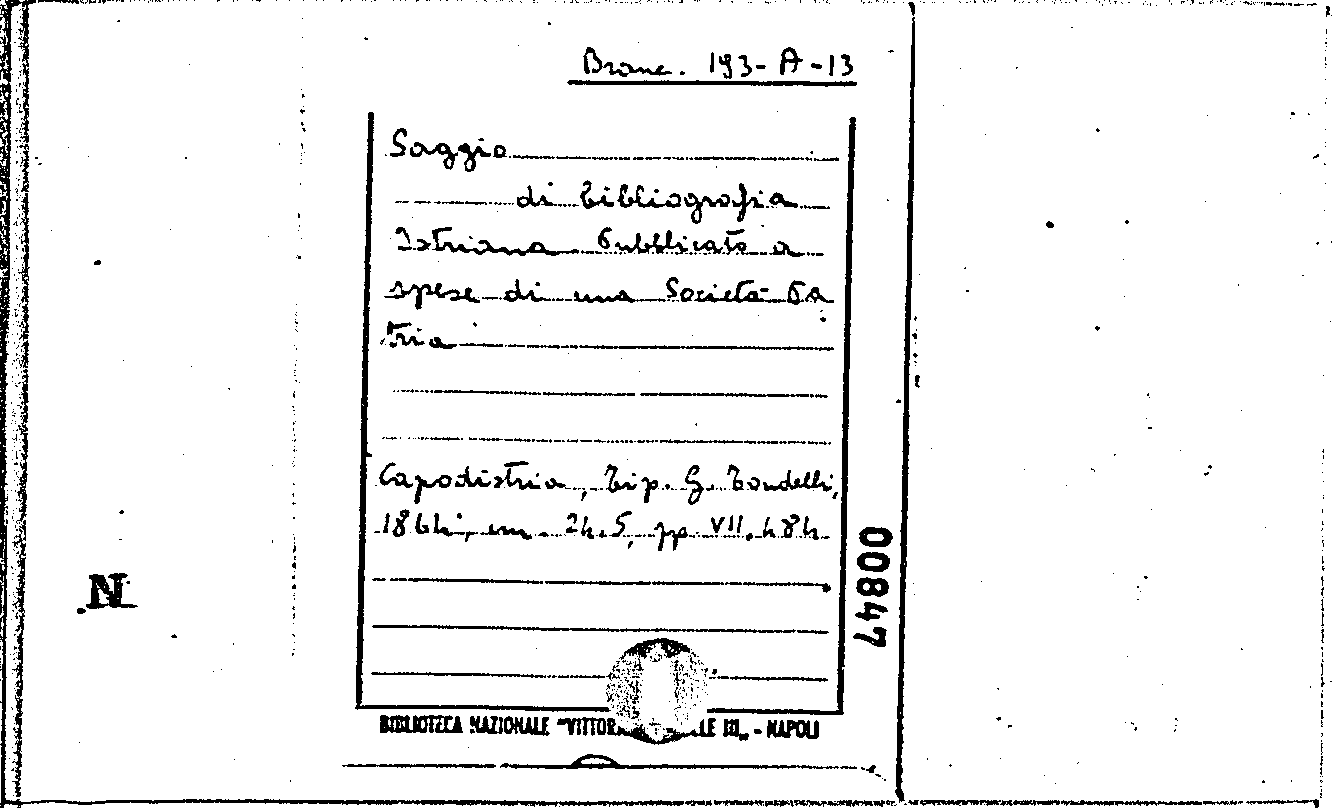 Branc. 193-A-13
Saggio
di bibliografia
Istriana Pubblicato a
spese di una Società Pa
tria
Capodistria, Tip. G. Tondelli,
1864, cm. 24.5, pp VII. 484
00847
N
BIBLIOTECA NAZIONALE "VITTOR LE III„ - NAPOLI